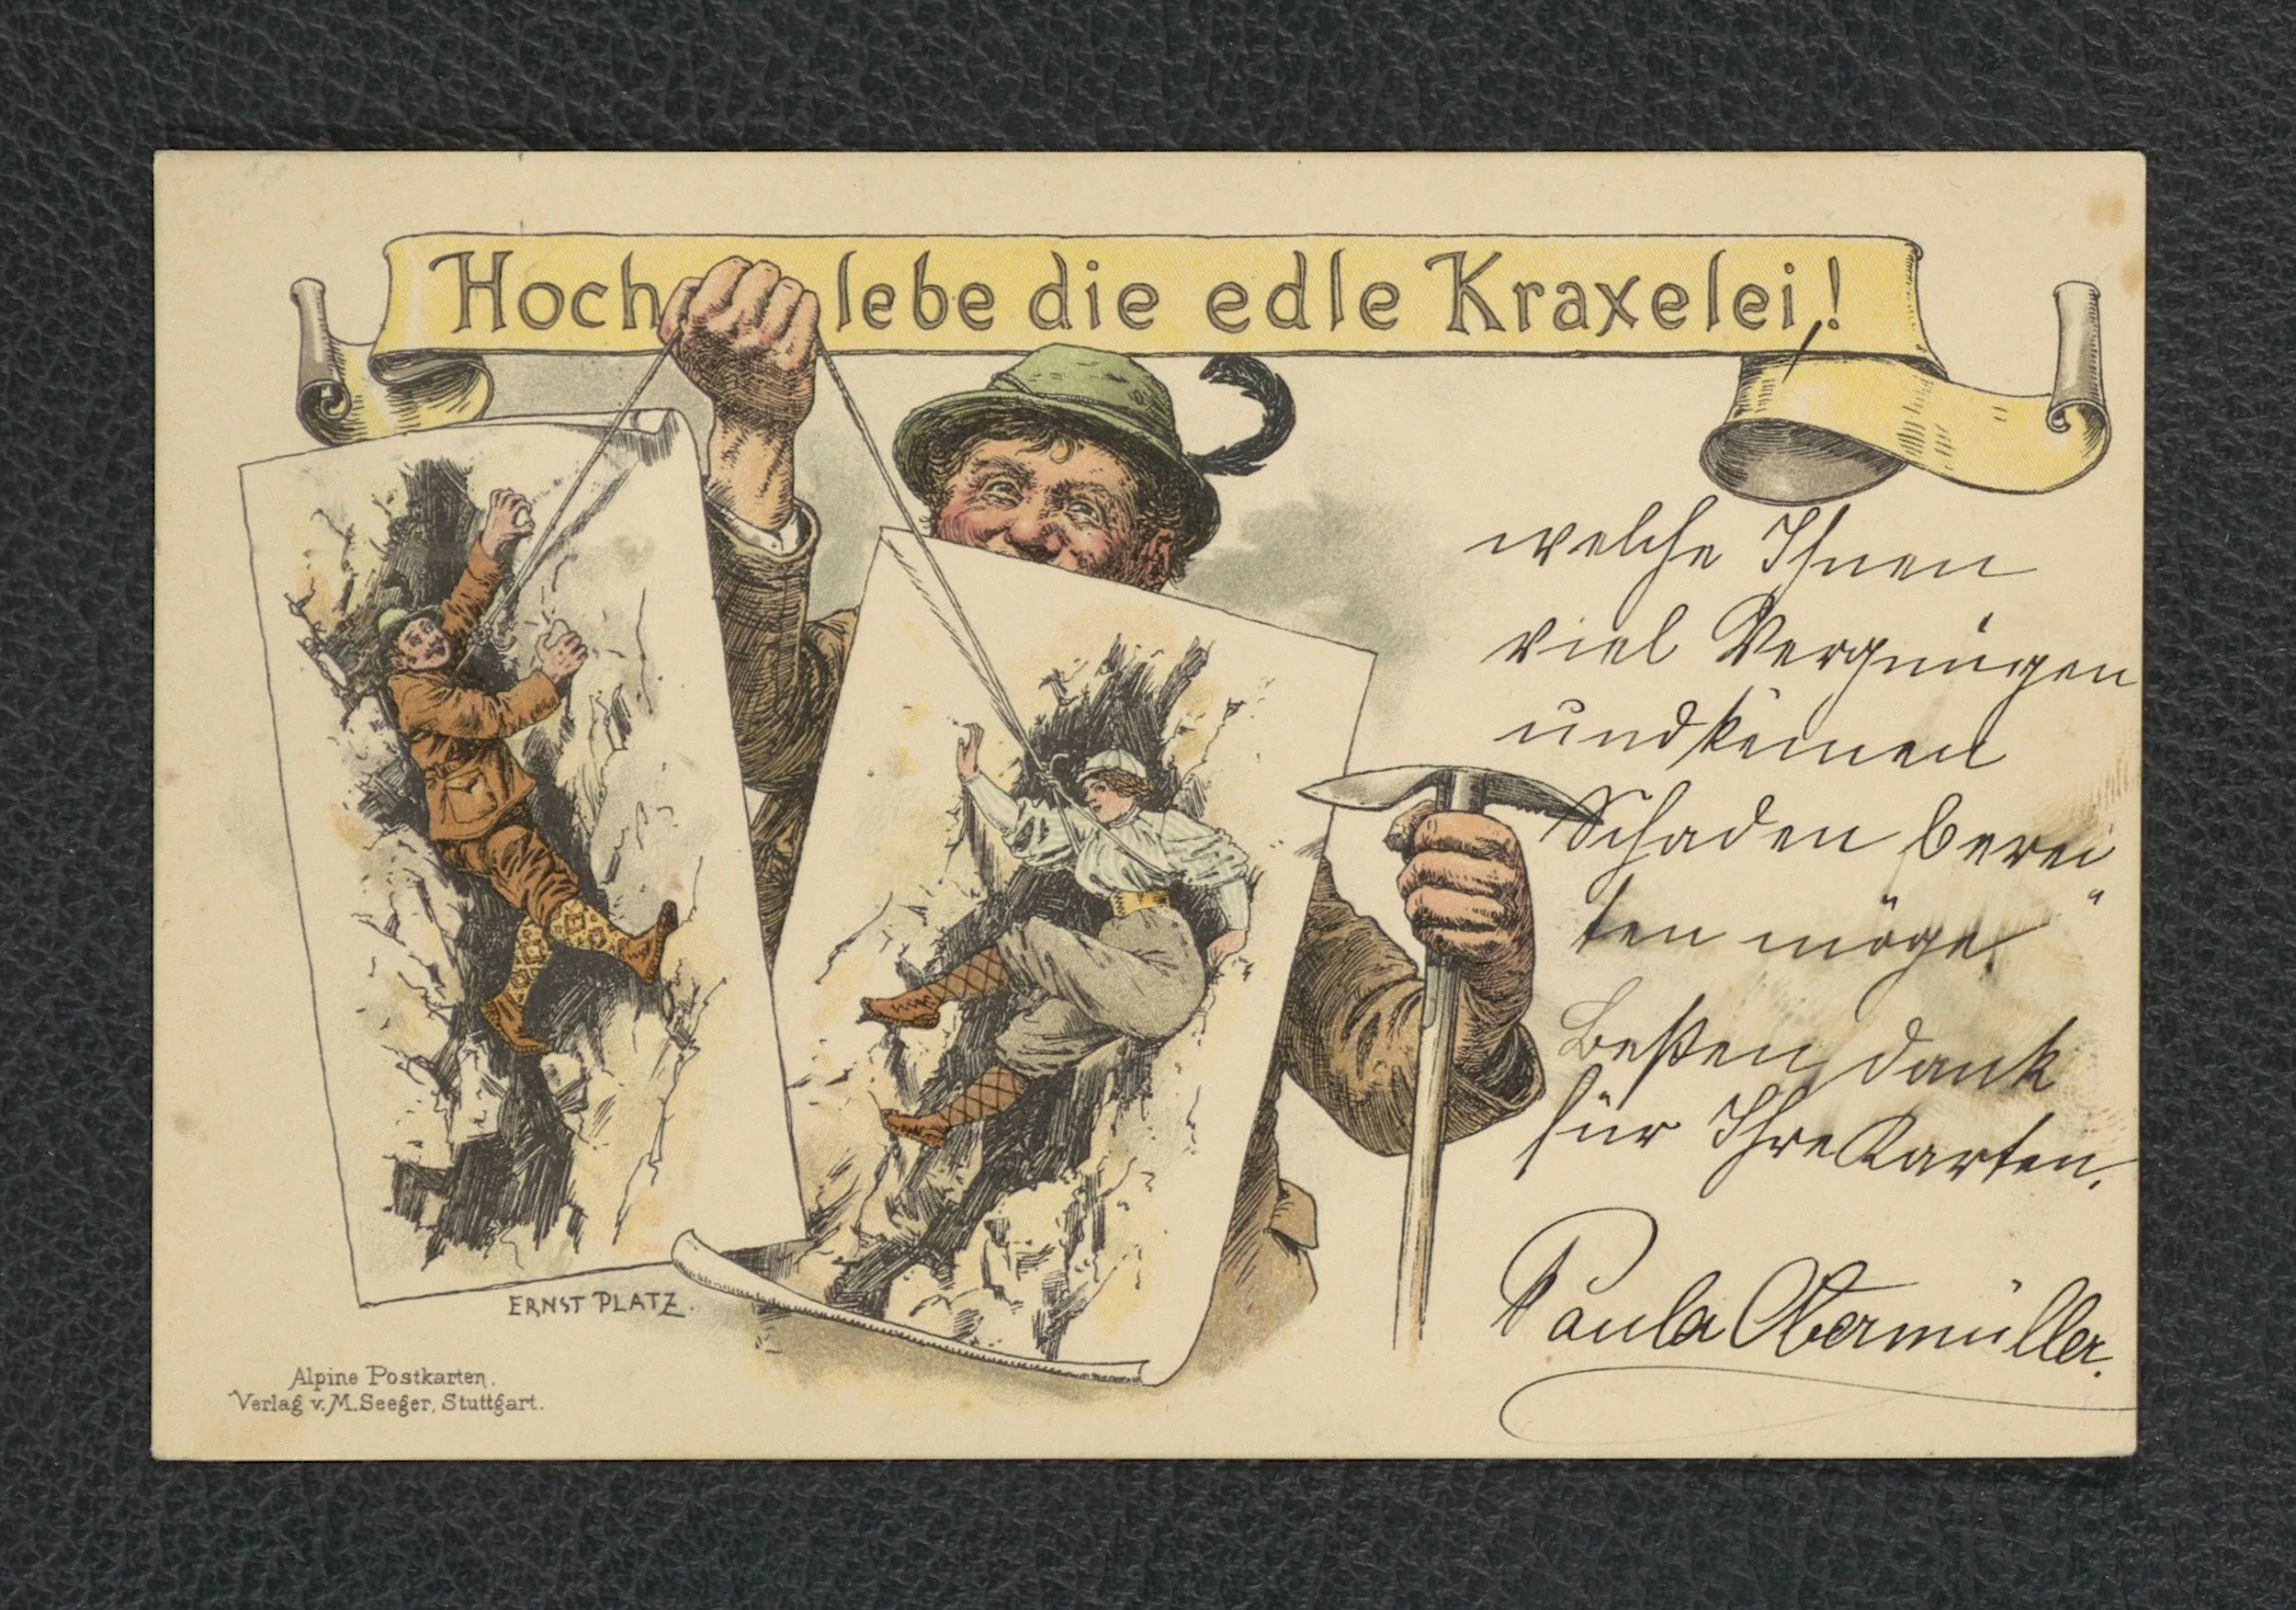 Hoch lebe die edle Kraxelei,!
welche Ihnen
viel Vergnügen
und keinen
Schaden berei
ten möge"
Besten Dank
für Ihre Karten.
Paula Obermüller.
ERNST PLATZ.
Alpine Postkarten.
Verlag v. M. Seeger, Stuttgart.